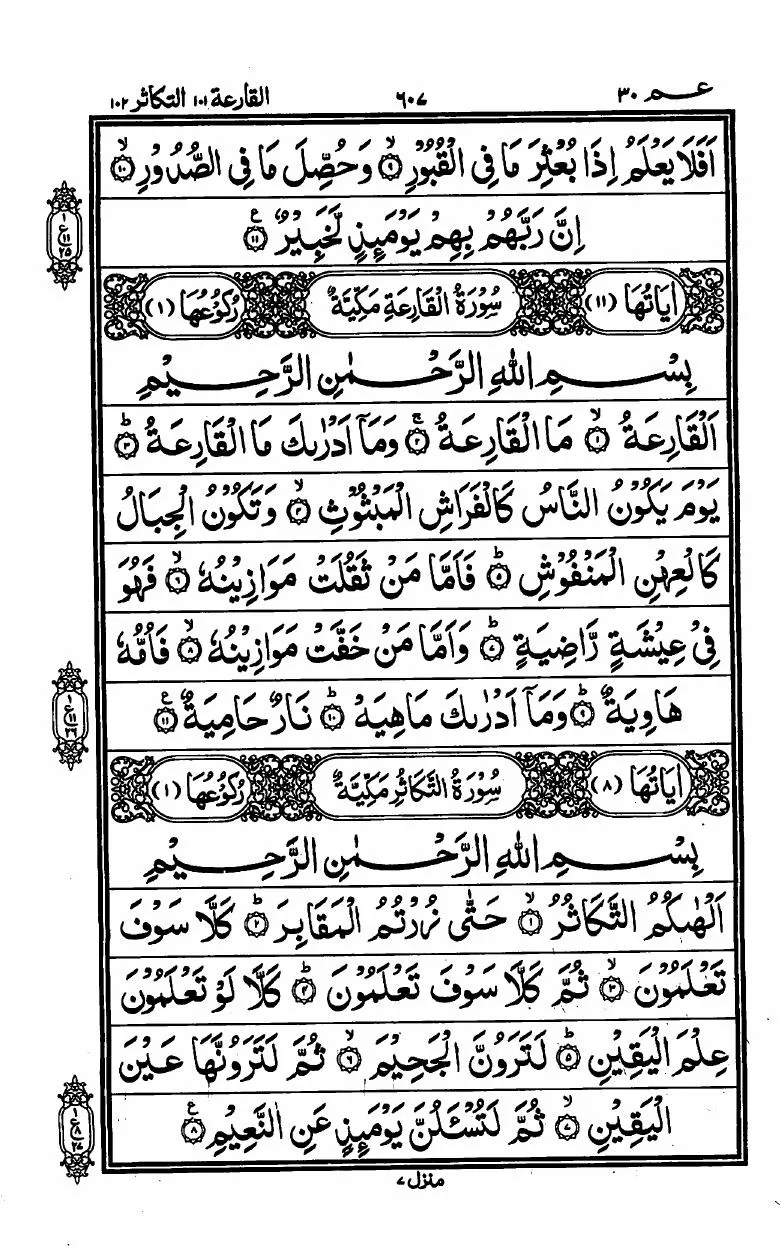 عـــم ٣٠ ٦٠٧ القارعة ١٠١ التكاثر ١٠٢
اَفَلَا يَعْلَمُ اِذَا بُعْثِرَ مَا فِى الْقُبُوْرِ ۙ۝۹ وَحُصِّلَ مَا فِى الصُّدُوْرِ ۙ۝۱۰
اِنَّ رَبَّهُمْ بِهِمْ يَوْمَئِذٍ لَّخَبِيْرٌ ۝۱۱ ع
اٰيَاتُهَا (١١) سُوْرَةُ الْقَارِعَةِ مَكِّيَّةٌ رُكُوْعُهَا (١)
بِسْمِ اللّٰهِ الرَّحْمٰنِ الرَّحِيْمِ
اَلْقَارِعَةُ ۙ۝۱ مَا الْقَارِعَةُ ۚ۝۲ وَمَآ اَدْرٰىكَ مَا الْقَارِعَةُ ؕ۝۳
يَوْمَ يَكُوْنُ النَّاسُ كَالْفَرَاشِ الْمَبْثُوْثِ ۙ۝۴ وَتَكُوْنُ الْجِبَالُ
كَالْعِهْنِ الْمَنْفُوْشِ ؕ۝۵ فَاَمَّا مَنْ ثَقُلَتْ مَوَازِيْنُهٗ ۙ۝۶ فَهُوَ
فِىْ عِيْشَةٍ رَّاضِيَةٍ ؕ۝۷ وَاَمَّا مَنْ خَفَّتْ مَوَازِيْنُهٗ ۙ۝۸ فَاُمُّهٗ
هَاوِيَةٌ ؕ۝۹ وَمَآ اَدْرٰىكَ مَاهِيَهْ ؕ۝۱۰ نَارٌ حَامِيَةٌ ۝۱۱ ع
اٰيَاتُهَا (٨) سُوْرَةُ التَّكَاثُرِ مَكِّيَّةٌ رُكُوْعُهَا (١)
بِسْمِ اللّٰهِ الرَّحْمٰنِ الرَّحِيْمِ
اَلْهٰىكُمُ التَّكَاثُرُ ۙ۝۱ حَتّٰى زُرْتُمُ الْمَقَابِرَ ؕ۝۲ كَلَّا سَوْفَ
تَعْلَمُوْنَ ۙ۝۳ ثُمَّ كَلَّا سَوْفَ تَعْلَمُوْنَ ؕ۝۴ كَلَّا لَوْ تَعْلَمُوْنَ
عِلْمَ الْيَقِيْنِ ؕ۝۵ لَتَرَوُنَّ الْجَحِيْمَ ۙ۝۶ ثُمَّ لَتَرَوُنَّهَا عَيْنَ
الْيَقِيْنِ ۙ۝۷ ثُمَّ لَتُسْـَٔلُنَّ يَوْمَئِذٍ عَنِ النَّعِيْمِ ۝۸ ع
منزل ٧
١ ع ١١ ٢٥
١ ع ١١ ٢٦
١ ع ٨ ٢٧